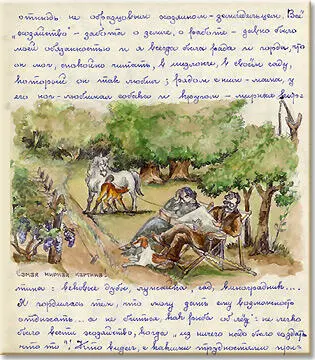 отнюдь не образцовым хозяином-земледельцем. Всё
"хозяйство" - забота о земле, о работе - давно было
моей обязанностью и я всегда была рада и горда, что
он мог, спокойно читать, в шезлонге, в своём саду,
который он так любил; рядом с ним - мама, у
его ног - любимая собака и кругом - мирная
Самая мирная картина
тина: вековые дубы, лужайка, сад, виноградник...
Я гордилась тем, что могу дать ему возможность
отдыхать... а не биться, как рыба об лёд: не легко
было вести хозяйство, когда "из ничего надо было создать
что то"! Кто видел, с какими трудностями